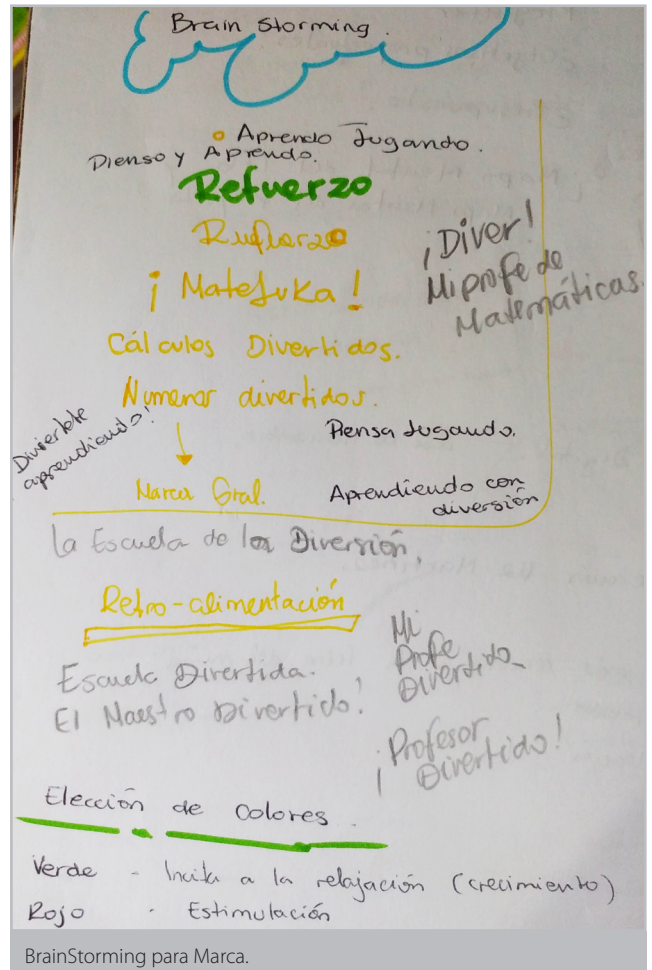 Brain Storming.
Aprendo Jugando.
Pienso y Aprendo.
Refuerzo
Rufuerzo
¡MateJuKa!
¡Diver!
Mi profe de
Matemáticas.
Cálculos Divertidos.
Numeros divertidos.
Diviertete
aprendiendo!
Piensa Jugando.
Marca Gral.
Aprendiendo con
diversión
La Escuela de la Diversión,
Retro-alimentación
Mi
Profe
Divertido
Escuela Divertida.
El Maestro Divertido!
¡Profesor
Divertido!
Elección de Colores.
Verde - Incita a la relajación (crecimiento)
Rojo - Estimulación
BrainStorming para Marca.